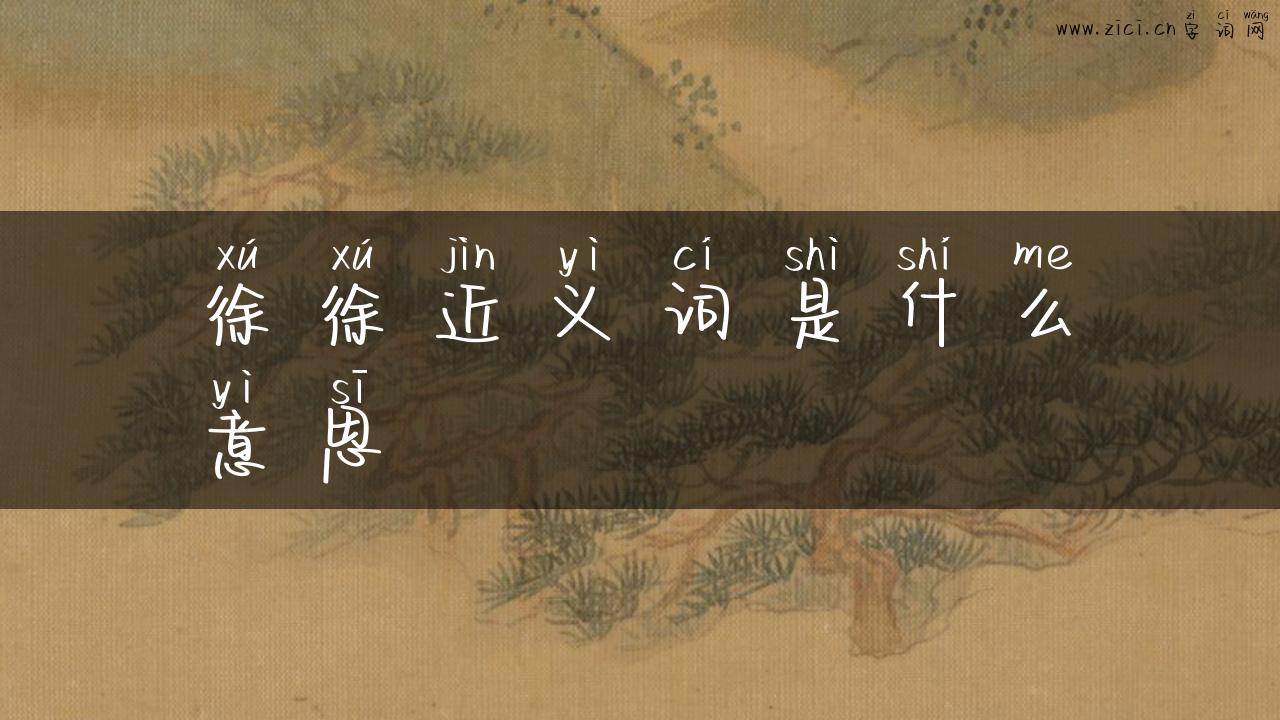 zì cí wǎng
www.zici.cn 字 词 网
xú xú jìn yì cí shì shí me
徐 徐 近 义 词 是 什 么
yì sī
意 思